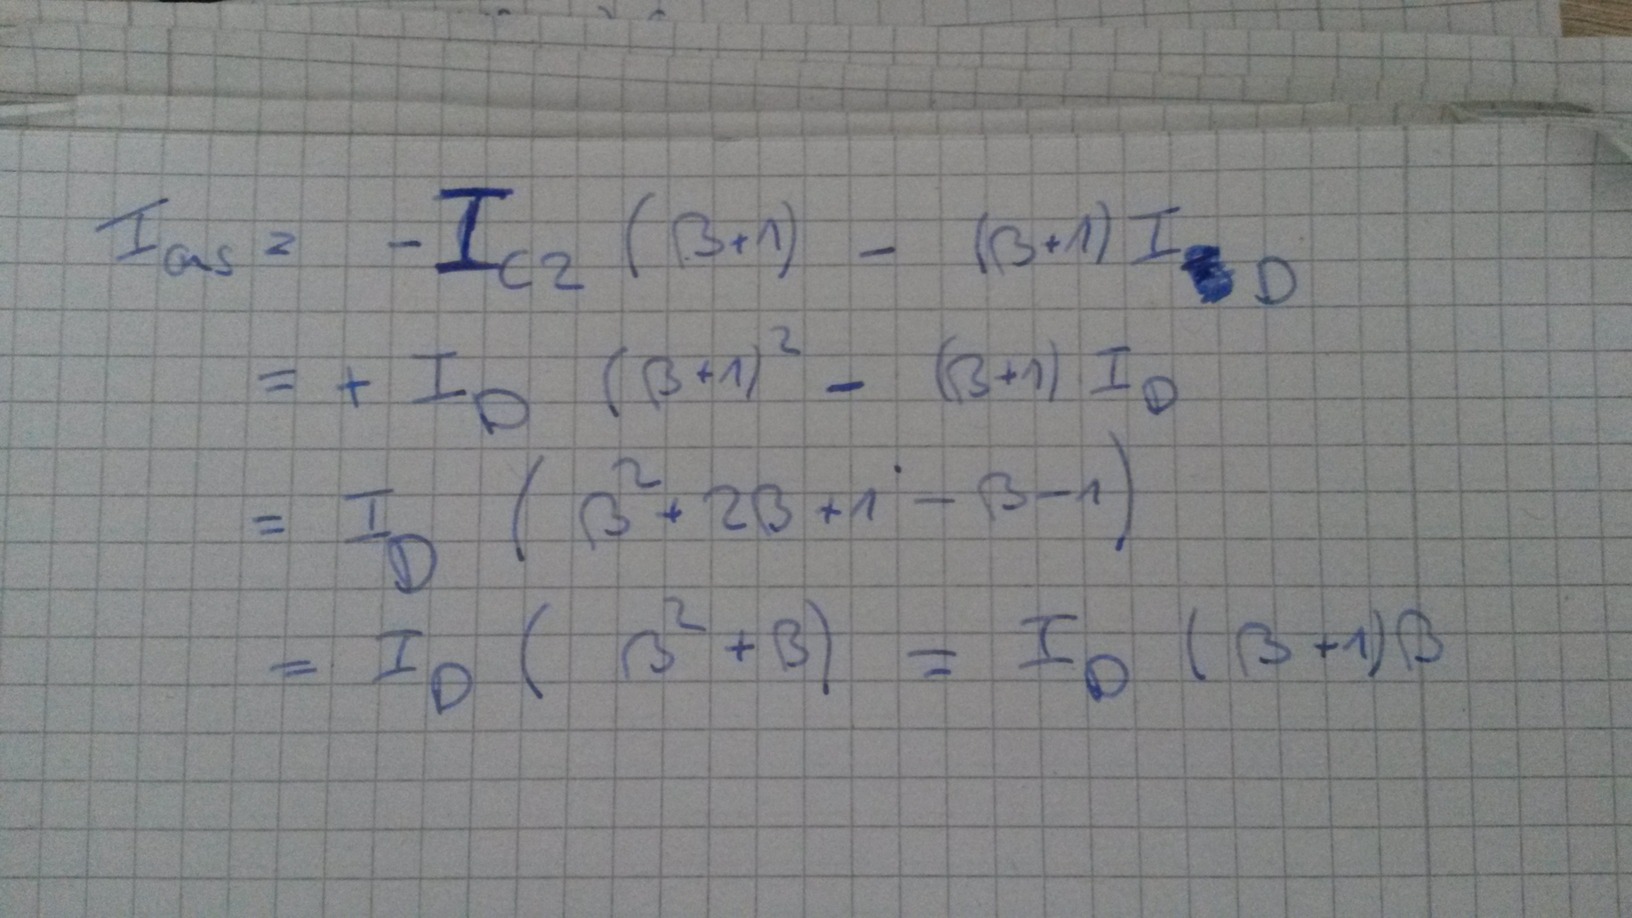 I_aus = -I_C2 (β+1) - (β+1) I_D
= + I_D (β+1)² - (β+1) I_D
= I_D (β² + 2β + 1 - β - 1)
= I_D (β² + β) = I_D (β+1)β